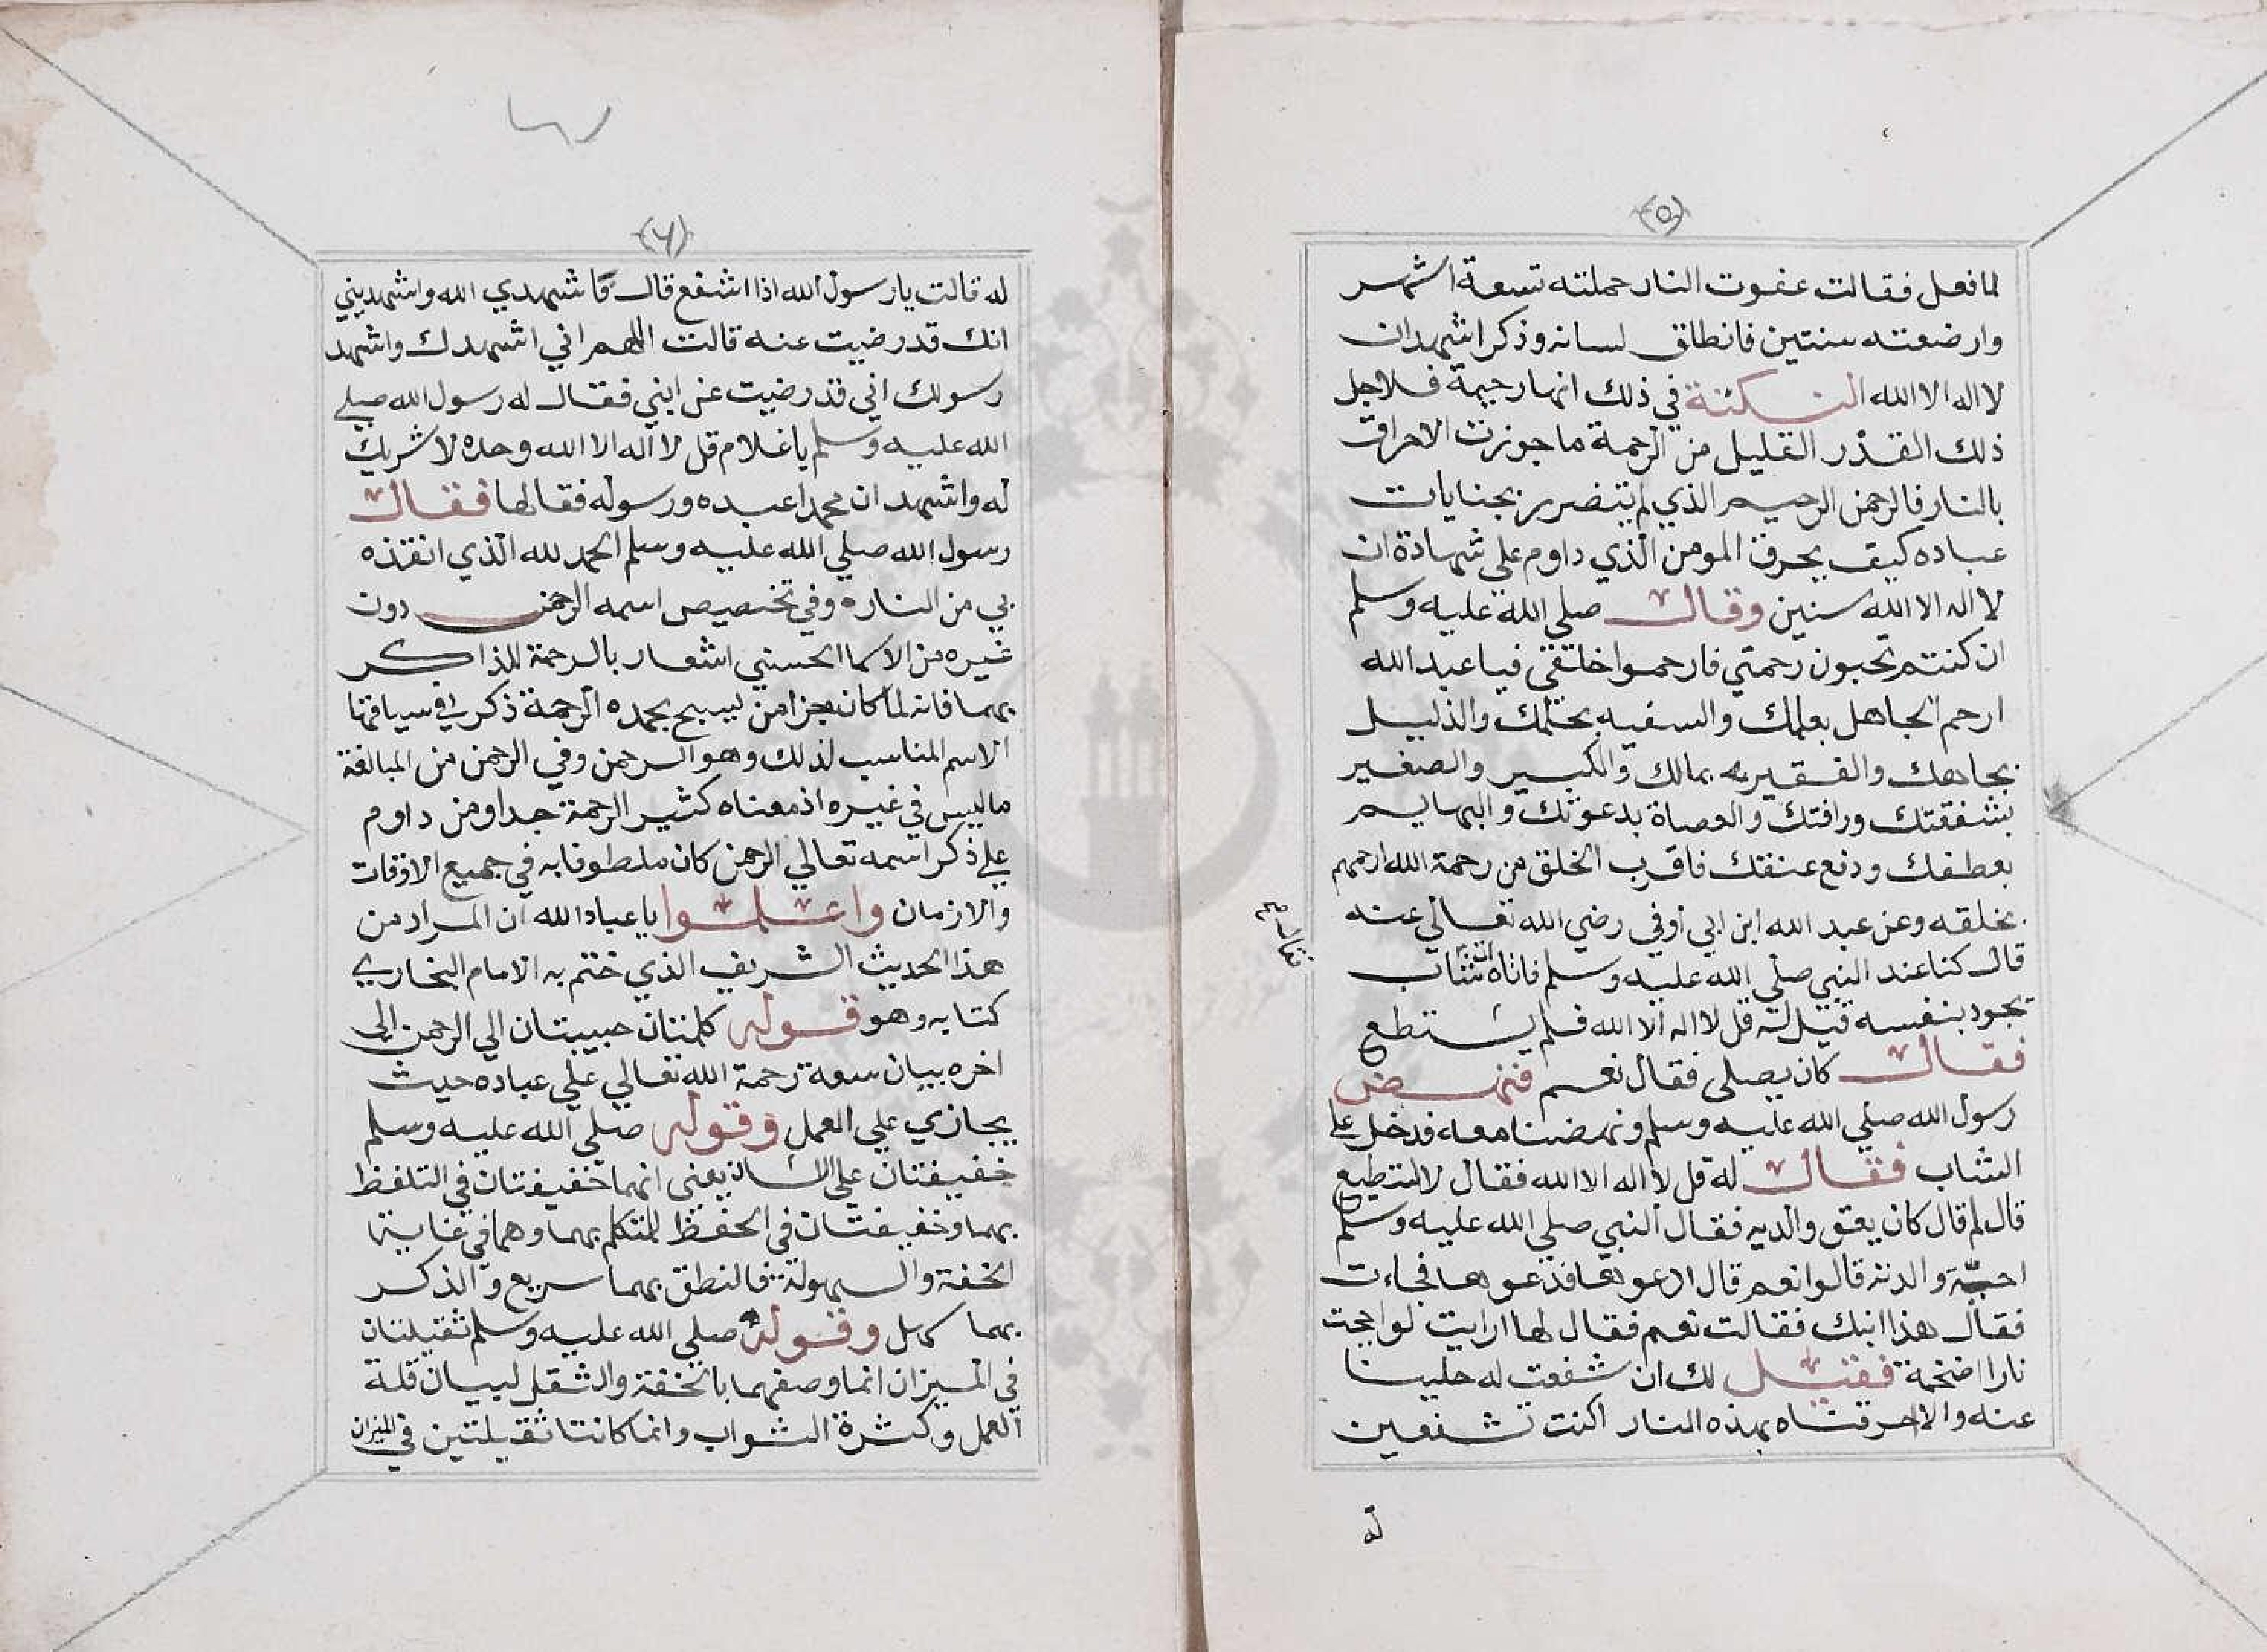 (٥)
لما فعل فقالت عفوت النار حملته تسعة اشهر
وارضعته سنتين فانطلق لسانه وذكر اشهد ان
لا اله الا الله النكتة في ذلك انها رحيمة فلاجل
ذلك القدر القليل من الرحمة ما جوزت الاحراق
بالنار فالرحمن الرحيم الذي لم يتضرر بجنايات
عباده كيف يحرق المومن الذي داوم علي شهادة ان
لا اله الا الله سنين وقال صلي الله عليه وسلم
ان كنتم تحبون رحمتي فارحموا خلقي فيا عبد الله
ارحم الجاهل بعلمك والسفيه بحلمك والذليل
بجاهك والفقير بمالك والكبير والصغير
بشفقتك ورافتك والعصاة بدعوتك والبهايم
بعطفك ودفع عنفك فاقرب الخلق من رحمة الله ارحمهم
بخلقه وعن عبد الله ابن ابي اوفي رضي الله تعالي عنه
قال كنا عند النبي صلي الله عليه وسلم فاتاه ات شاب
يجود بنفسه قيل له قل لا اله الا الله فلم يستطع
فقال كان يصلي فقال نعم فنهض
رسول الله صلي الله عليه وسلم ونهضنا معه فدخل علي
الشاب فقال له قل لا اله الا الله فقال لا استطيع
قال لم قال كان يعق والديه فقال النبي صلي الله عليه وسلم
احيّة والدته قالوا نعم قال ادعوها فدعوها فجاءت
فقال هذا ابنك فقالت نعم فقال لها ارايت لو اججت
نارا ضخمة فقيل لك ان شفعت له خلينا
عنه والا احرقناه بهذه النار اكنت تشفعين
له
(٦)
له قالت يارسول الله اذا اشفع قال فاشهدي الله واشهديني
انك قد رضيت عنه قالت اللهم اني اشهدك واشهد
رسولك اني قد رضيت عن ابني فقال له رسول الله صلي
الله عليه وسلم يا غلام قل لا اله الا الله وحده لا شريك
له واشهد ان محمدا عبده ورسوله فقالها فقال
رسول الله صلي الله عليه وسلم الحمد لله الذي انقذه
بي من النار ه وفي تخصيص اسمه الرحمن دون
غيره من الاسما الحسني اشعار بالرحمة للذاكر
بهما فانه لما كان جزا من يسبح بحمده الرحمة ذكر في سياقها
الاسم المناسب لذلك وهو الرحمن وفي الرحمن من المبالغة
ما ليس في غيره اذ معناه كثير الرحمة جدا ومن داوم
علي ذكر اسمه تعالي الرحمن كان ملطوفا به في جميع الاوقات
والازمان واعلموا يا عباد الله ان المراد من
هذا الحديث الشريف الذي ختم به الامام البخاري
كتابه وهو قوله كلمتان حبيبتان الي الرحمن الي
اخره بيان سعة رحمة الله تعالي علي عباده حيث
يجازي علي العمل وقوله صلي الله عليه وسلم
خفيفتان علي اللسان يعني انهما خفيفتان في التلفظ
بهما وخفيفتان في الحفظ للمتكلم بهما وهما في غاية
الخفة والسهولة فالنطق بهما سريع والذكر
بهما كهل وقوله صلي الله عليه وسلم ثقيلتان
في الميزان انما وصفهما بالخفة والثقل لبيان قلة
العمل وكثرة الثواب وانما كانتا ثقيلتين في الميزان